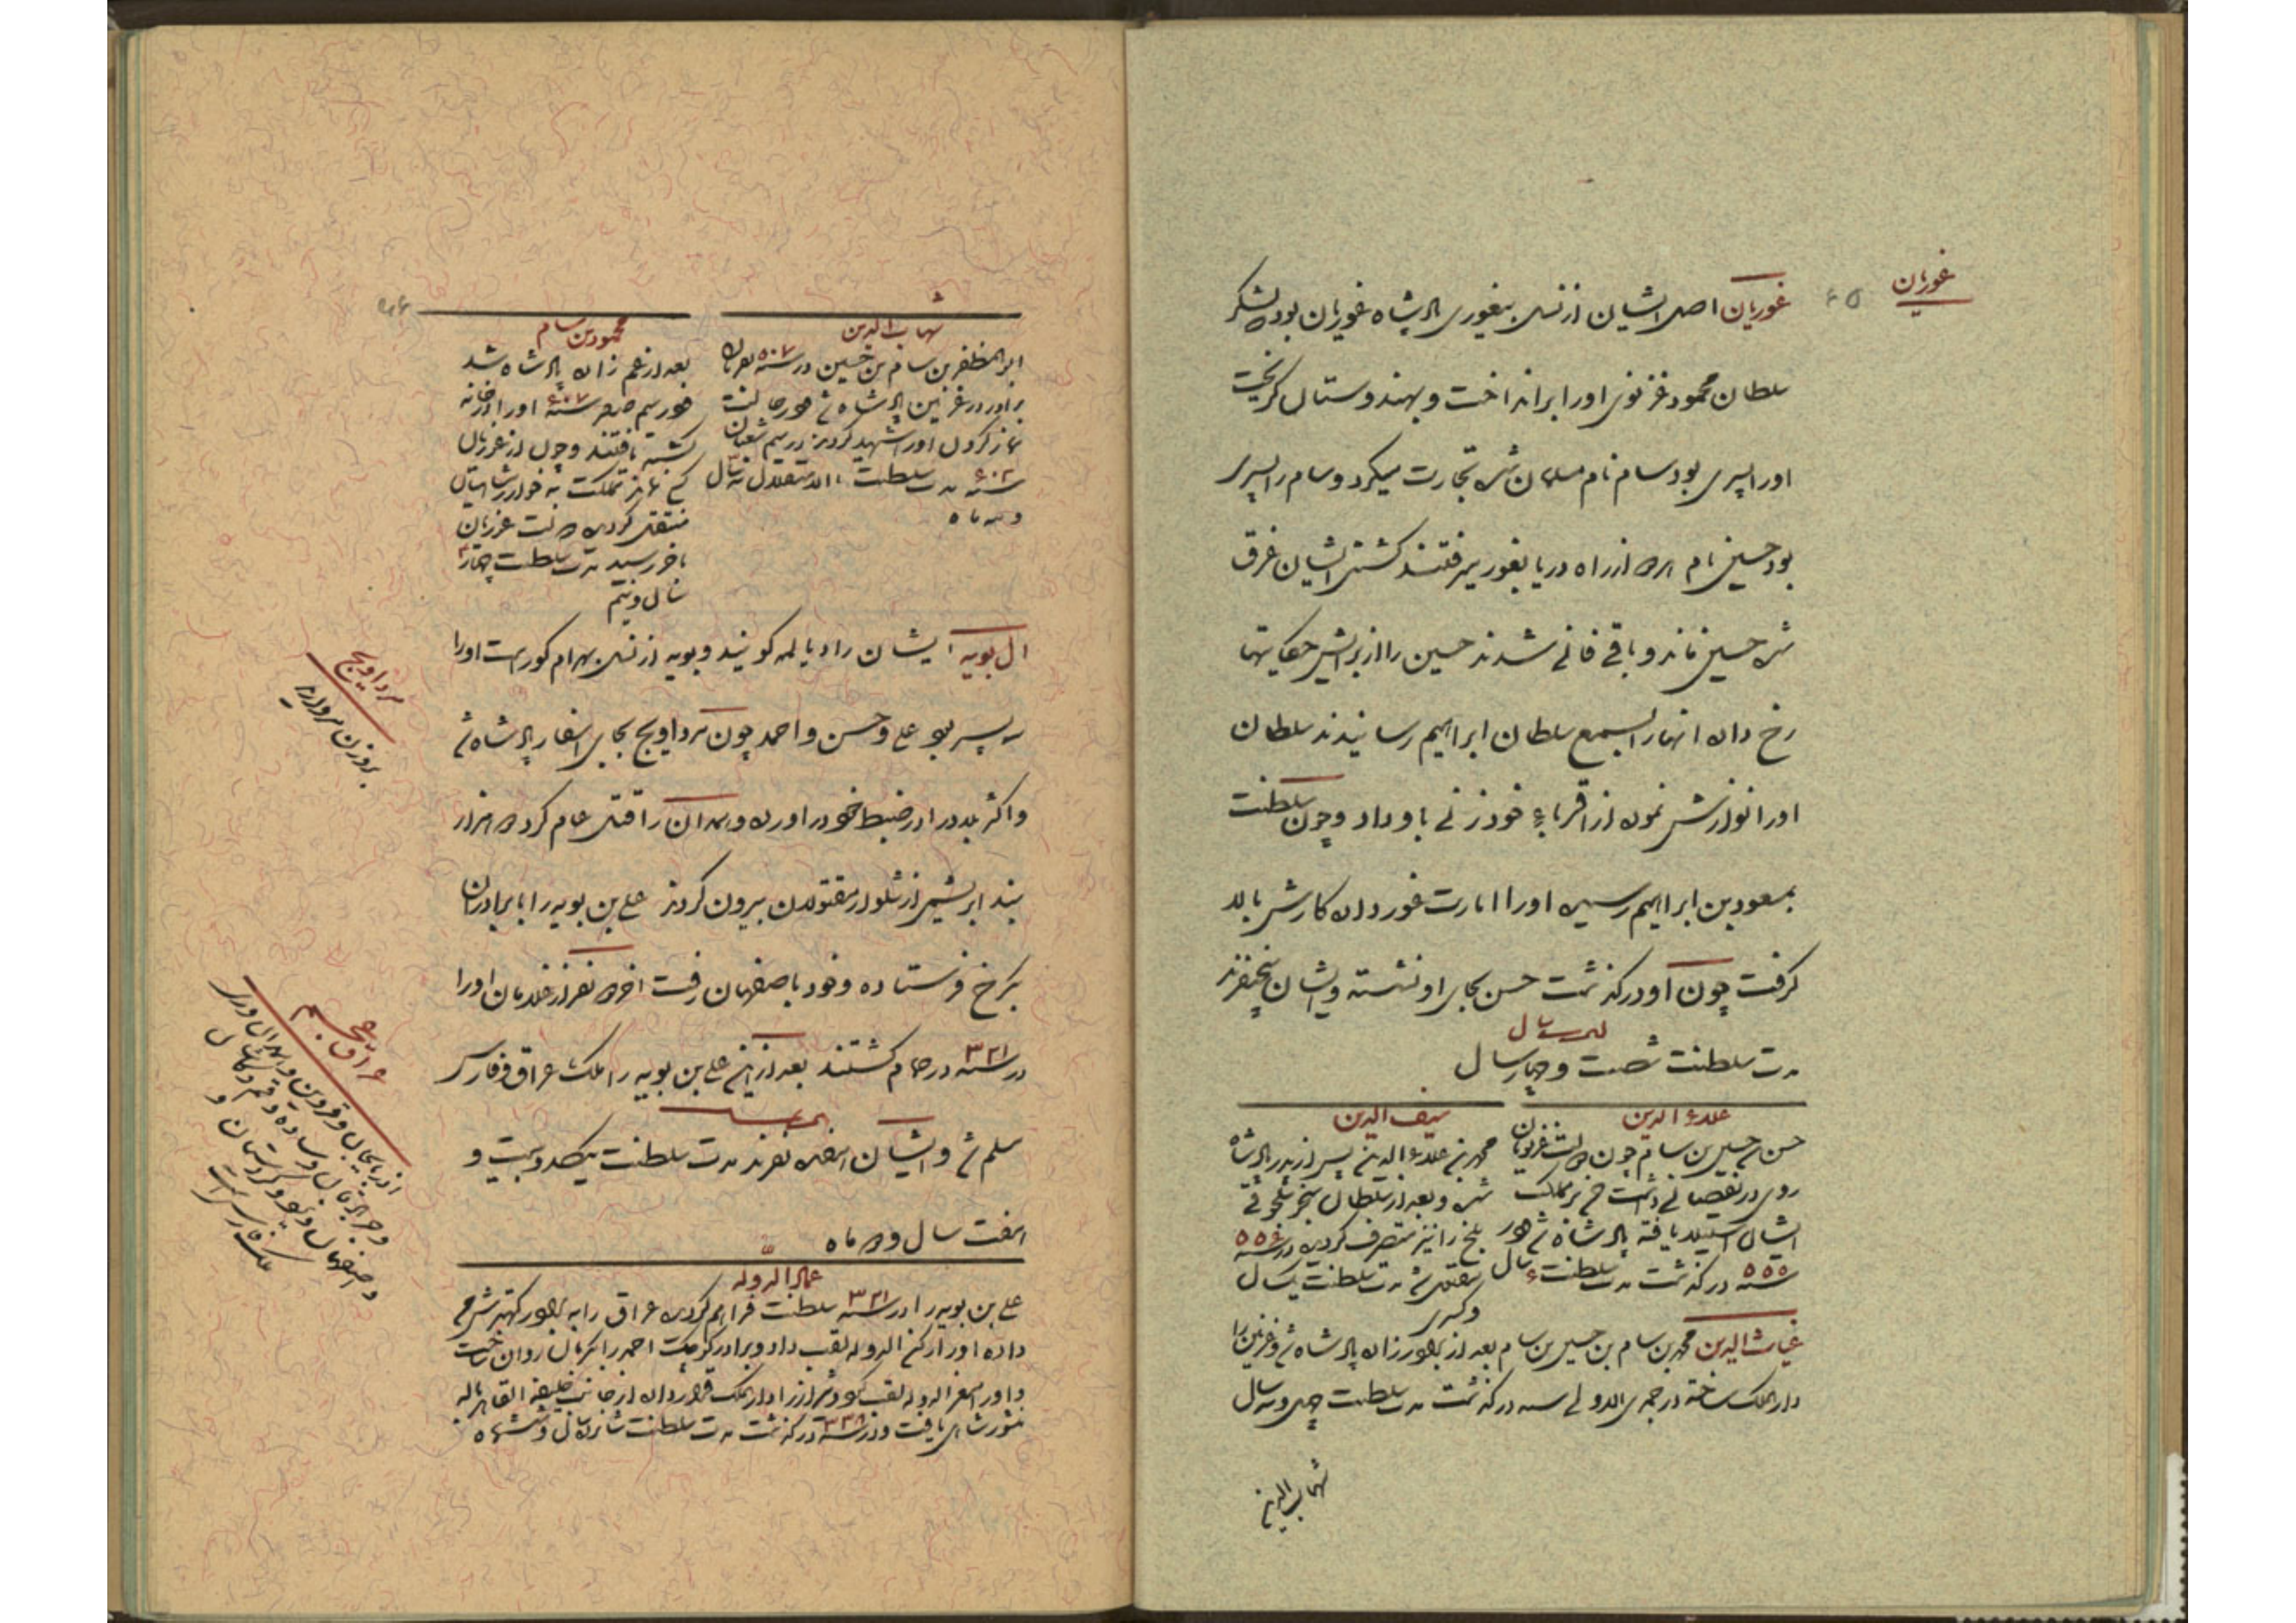 غوریان
غوریان اصل ایشان از نسل بیغوری پادشاه غوریان بوده لشکر
سلطان محمود غزنوی اورا برانداخت و بهندوستان گریخت
اورا پسری بود سام نام مسلمان شده تجارت میکرد و سام را پسری
بود حسین نام از راه دریا بغور میرفتند کشتی ایشان غرق
شده حسین ماند و باقی فانی شدند حسین را از برایش حکایتها
رخ داده انها را بسمع سلطان ابراهیم رسانیدند سلطان
اورا نوازش نموده از اقرباء خود زنی باو داد و چون سلطنت
بمسعود بن ابراهیم رسیده اورا امارت غور داده کارش بالا
گرفت چون او درگذشت حسن بجای او نشسته و ایشان پنجنفرند
مدت سلطنت شصت و چهار سال
علاء الدین
حسن بن حسین بن سام چون دولت غزنویان
روی در نقصانی داشت بر مملکت
ایشان استیلا یافته پادشاه شد در
سنه ۵۵۵ درگذشت مدت سلطنت ۶ سال
سیف الدین
محمد بن علاء الدین پس از پدر پادشاه
شده و بعد از سلطان سنجر سلجوقی
بلخ را نیز متصرف گردیده در سنه ۵۵۶
بقتل مدت سلطنت یکسال
و کسری
غیاث الدین محمد بن سام بن حسین بن سام بعد از برادرزاده پادشاه شد و غزنین را
دارالملک ساخته در جمادی الاولی سنه درگذشت مدت سلطنت چهل و سه سال
شهاب الدین
شهاب الدین
ابوالمظفر بن سام بن حسین در سنه ۵۰۷ بفرمان
برادر در غزنین پادشاه شد در حالت
نماز کردن اورا شهید کردند در سیم شعبان
سنه ۶۰۲ مدت سلطنت بالاستقلال سه سال
و سه ماه
محمود بن سام
بعد از عم زاده پادشاه شد
در سیم صفر سنه ۶۰۷ اورا در خانه
کشته یافتند و چون از غوریان
کسی نماند مملکت به خوارزمشاهیان
منتقل گردیده دولت غوریان
باخر رسید مدت سلطنت چهار
سال و نیم
ال بویه ایشان را دیالمه گویند و بویه از نسل بهرام گور است اورا
سه پسر بود علی و حسن و احمد چون مرداویج بجای اسفار پادشاه شد
و اکثر بلاد را در ضبط خود در اورده و همدان را قتل عام کرده دو خروار
بند ابریشمی از شلوار مقتولان بیرون کردند علی بن بویه را با برادران
بکرخ فرستاده و خود باصفهان رفت اخر دو نفر از غلامان اورا
در سنه ۳۲۱ در حمام کشتند بعد از این علی بن بویه را ملک عراق و فارس
سلم شد و ایشان هفده نفرند مدت سلطنت یکصد و بیست و
هفت سال و دو ماه
عماد الدوله
علی بن بویه را در سنه ۳۲۱ سلطنت فراهم گردیده عراق را به برادر کهترش
داده اورا رکن الدوله لقب داد و برادر کوچک احمد را بکرمان روان ساخت
و اورا معز الدوله لقب نمود و شیراز را دارالملک قرار داده از جانب خلیفه القاهر بالله
منشور شاهی یافت و در سنه ۳۳۸ درگذشت مدت سلطنت شانزده سال و ششماه
مرداویج
بروزن مروارید
عراق عجم
اذربایجان و قزوین و همدان و ری
و ساوه و قم و کاشان
و اصفهان و کردستان و